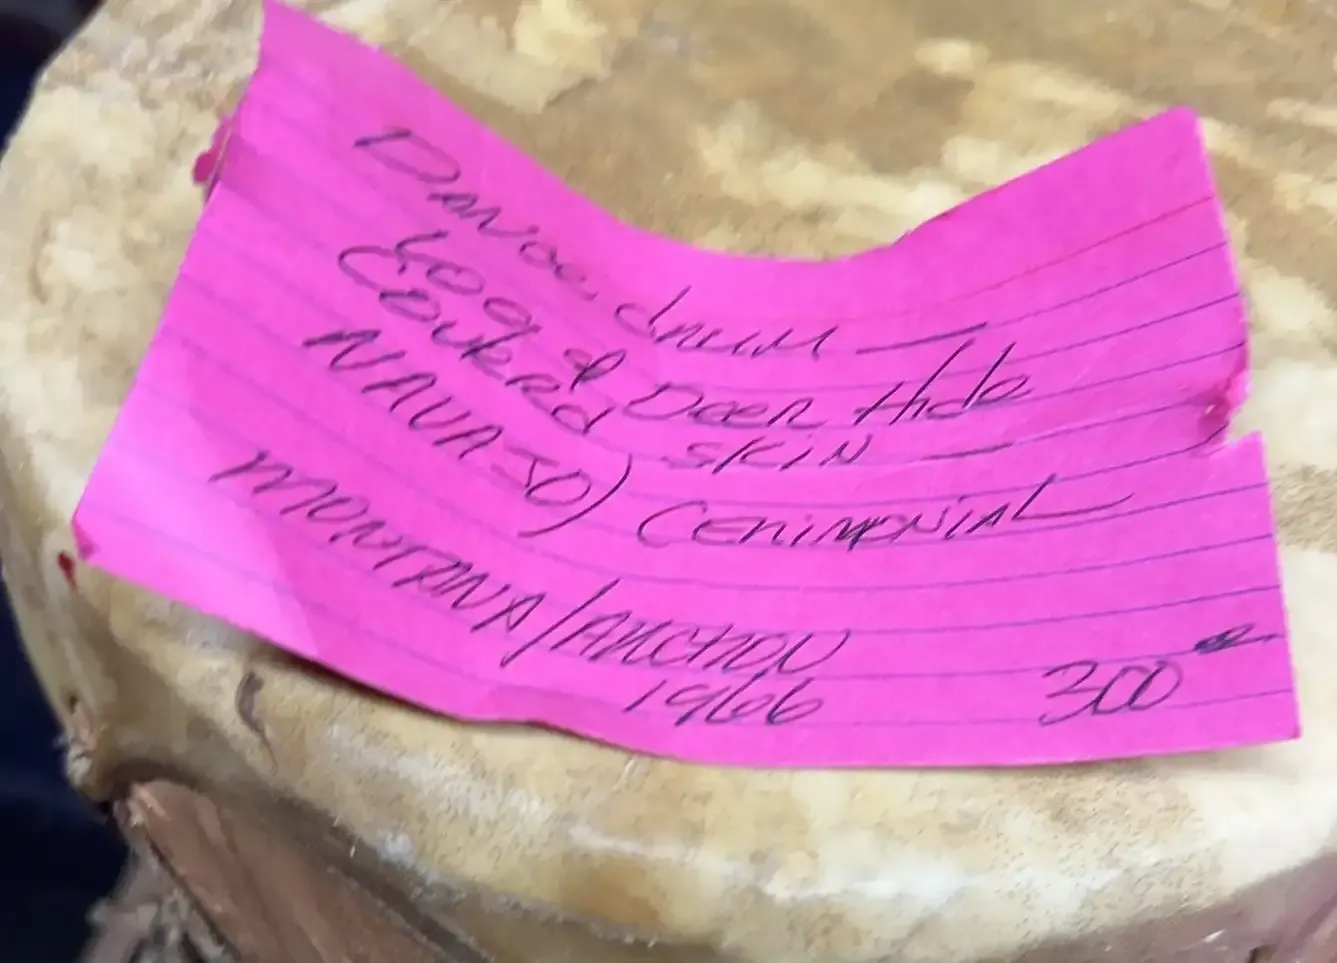 Dance drum —
Log & Deer Hide
Covered SKiN —
NAVAJO) CEriMONIAL
MONTANA/AUCTION
1966 300